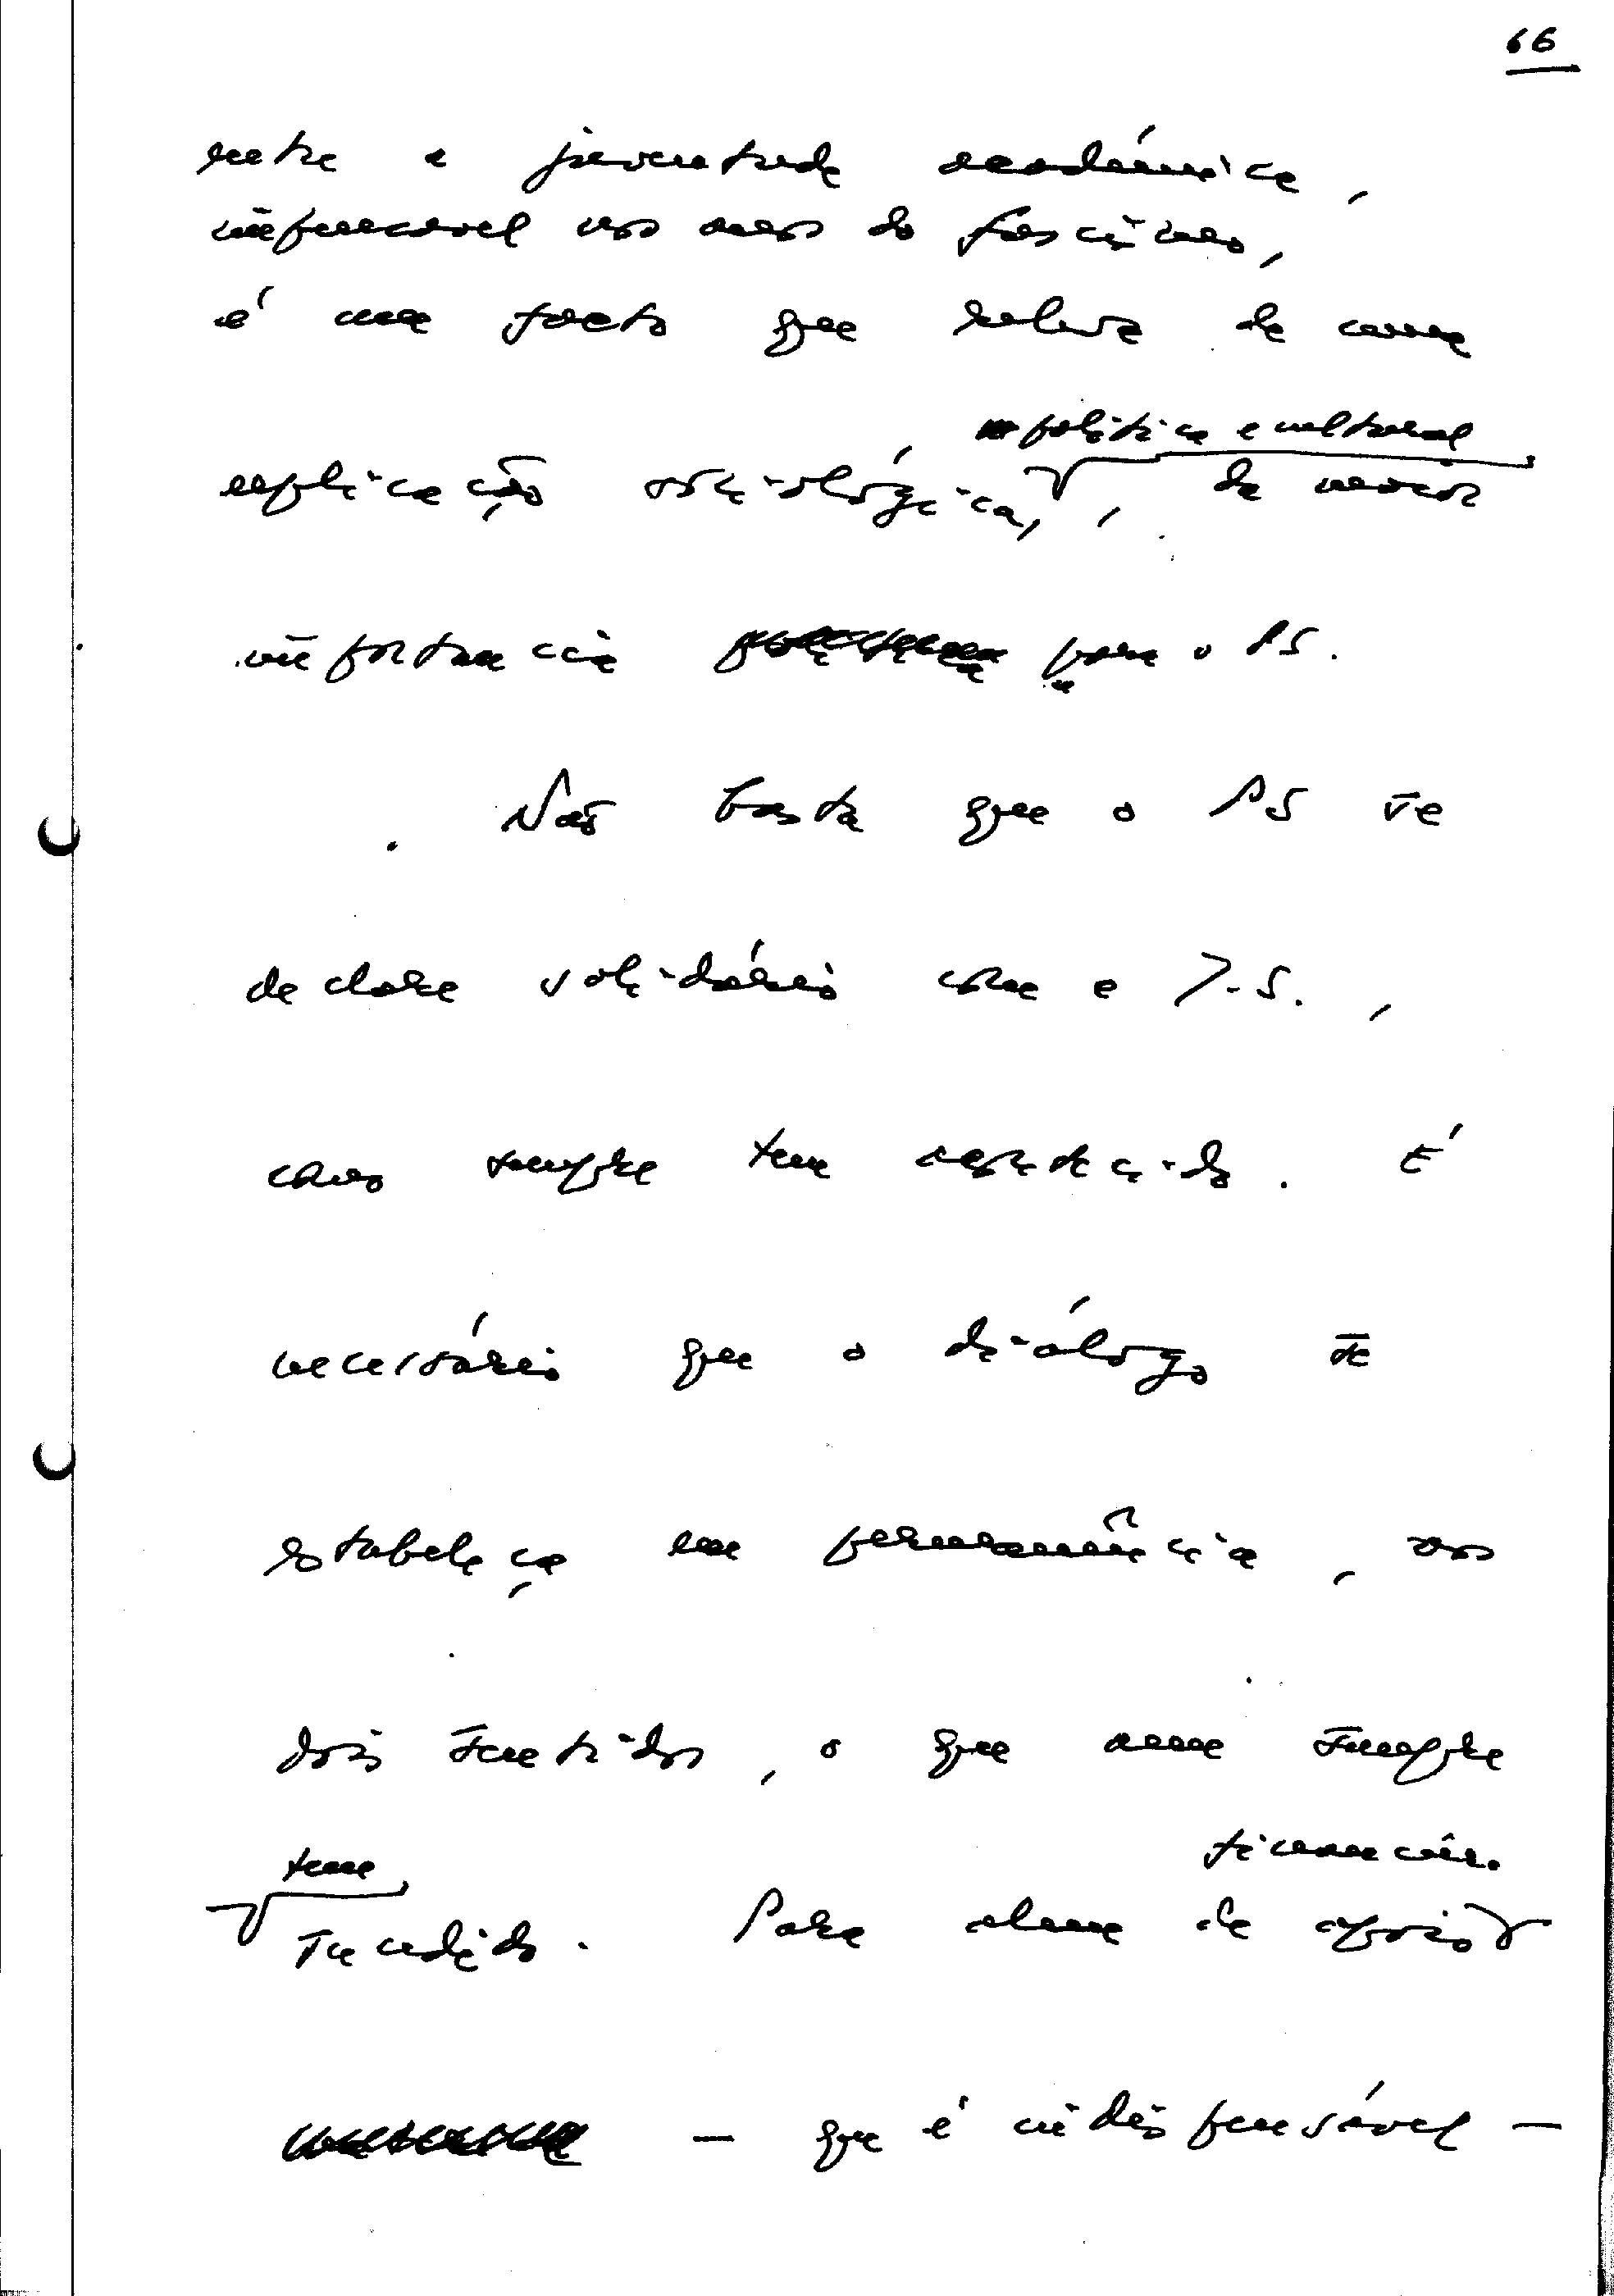 66
entre a juventude académica,
impensável nos anos do fascismo,
é um facto que releva de uma
política e cultural
explicação sociológica, , da maior
importância para o PS.
Não basta que o PS se
declare solidário com a J.S.,
como sempre tem acontecido. É
necessário que o diálogo se
estabeleça em permanência, nos
dois sentidos, o que nem sempre
tem
sucedido. Para além do apoio
financeiro
— que é indispensável —